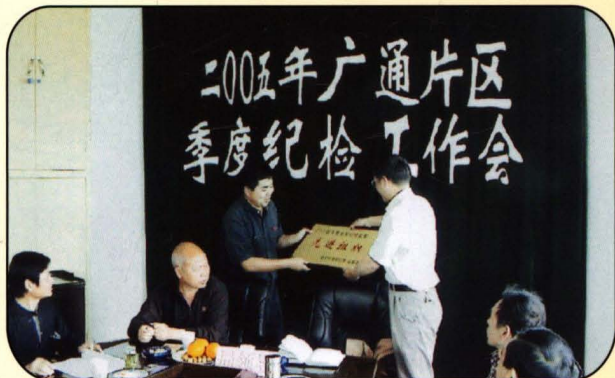 二00五年广通片区
季度纪检工作会
先进组织